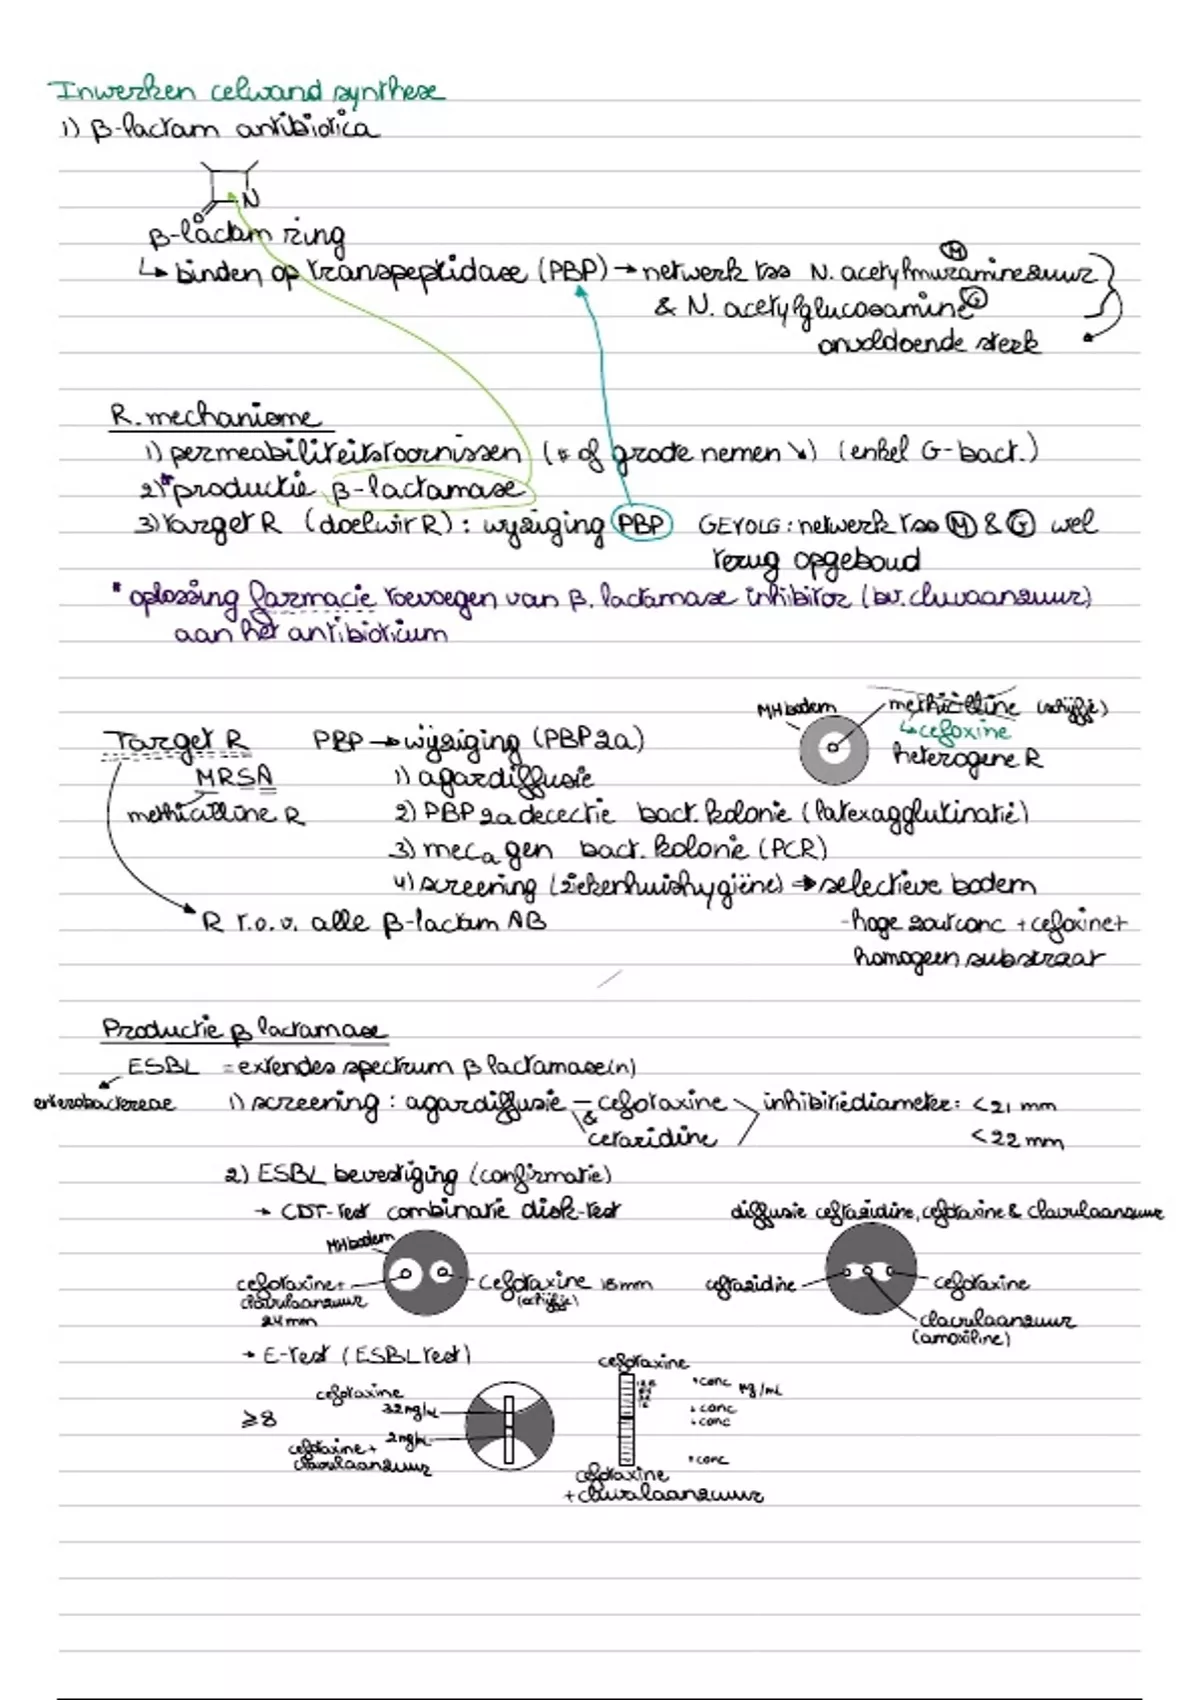 Inwerken celwand synthese
1) β-lactam antibiotica
N
O
β-lactam ring
↳ binden op transpeptidase (PBP) → netwerk tss N. acetylmuraminezuur Ⓜ
& N. acetylglucosamine Ⓖ
onvoldoende sterk
R. mechanisme
1) permeabiliteitstoornissen (# of grootte nemen ↘) (enkel G- bact.)
2)* productie β-lactamase
3) target R (doelwit R) : wijziging PBP GEVOLG : netwerk tss Ⓜ & Ⓖ wel
terug opgebouwd
* oplossing farmacie toevoegen van β. lactamase inhibitor (bv. clavulaanzuur)
aan het antibioticum
MH bodem methicilline (schijfje)
↳ cefoxine
heterogene R
Target R PBP → wijziging (PBP2a)
MRSA 1) agardiffusie
methicilline R 2) PBP2a detectie bact. kolonie (latexagglutinatie)
3) meca gen bact. kolonie (PCR)
4) screening (ziekenhuishygiëne) → selectieve bodem
R t.o.v. alle β-lactam AB - hoge zoutconc + cefoxine +
homogeen substraat
Productie β lactamase
ESBL = extendes spectrum β lactamase(n)
enterobactereae 1) screening : agardiffusie — cefotaxine inhibitiediameter: <21 mm
& cetazidine <22 mm
2) ESBL bevestiging (confirmatie)
→ CDT-test combinatie disk-test diffusie ceftazidine, cefotaxine & clavulaanzuur
MH bodem
cefotaxine + cefotaxine 18mm ceftazidine cefotaxine
clavulaanzuur (schijfje) clavulaanzuur
24mm (amoxiline)
→ E-test (ESBL test)
cefotaxine
cefotaxine 32 mg/L + conc μg/mL
≥8 ± conc
+ conc
cefotaxine + 2 mg/L
clavulaanzuur + conc
cefotaxine
+ clavulaanzuur